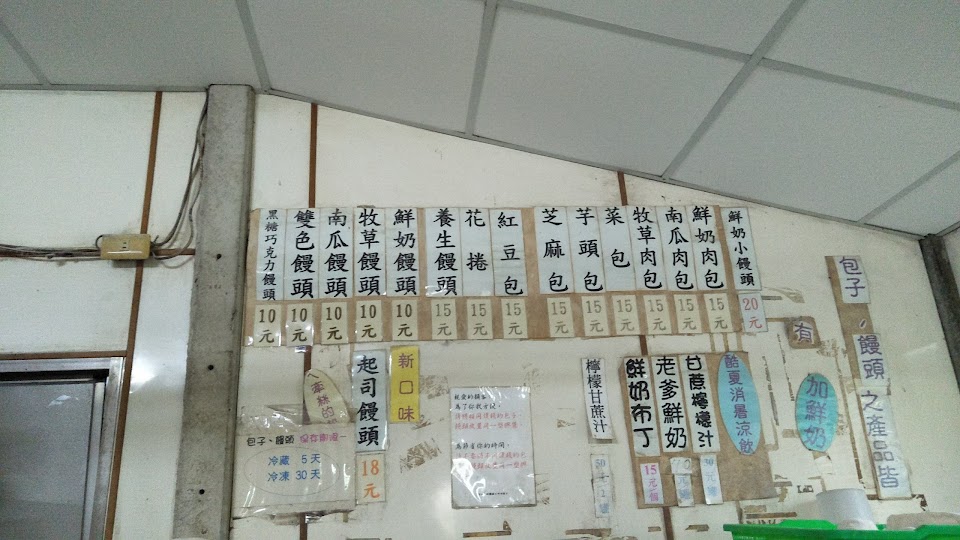 黑糖巧克力饅頭 10元
雙色饅頭 10元
南瓜饅頭 10元
牧草饅頭 10元
鮮奶饅頭 10元
養生饅頭 15元
花捲 15元
紅豆包 15元
芝麻包 15元
芋頭包 15元
菜包 15元
牧草肉包 15元
南瓜肉包 15元
鮮奶肉包 15元
鮮奶小饅頭 20元
包子、饅頭之產品皆
有
加鮮奶
酷夏消暑涼飲
甘蔗檸檬汁
老爹鮮奶
鮮奶布丁
15元/個
檸檬甘蔗汁
新口味
起司饅頭
18元
包子、饅頭 保存期限
冷藏 5天
冷凍 30天
親愛的顧客
為了你我方便,
為節省你的時間,